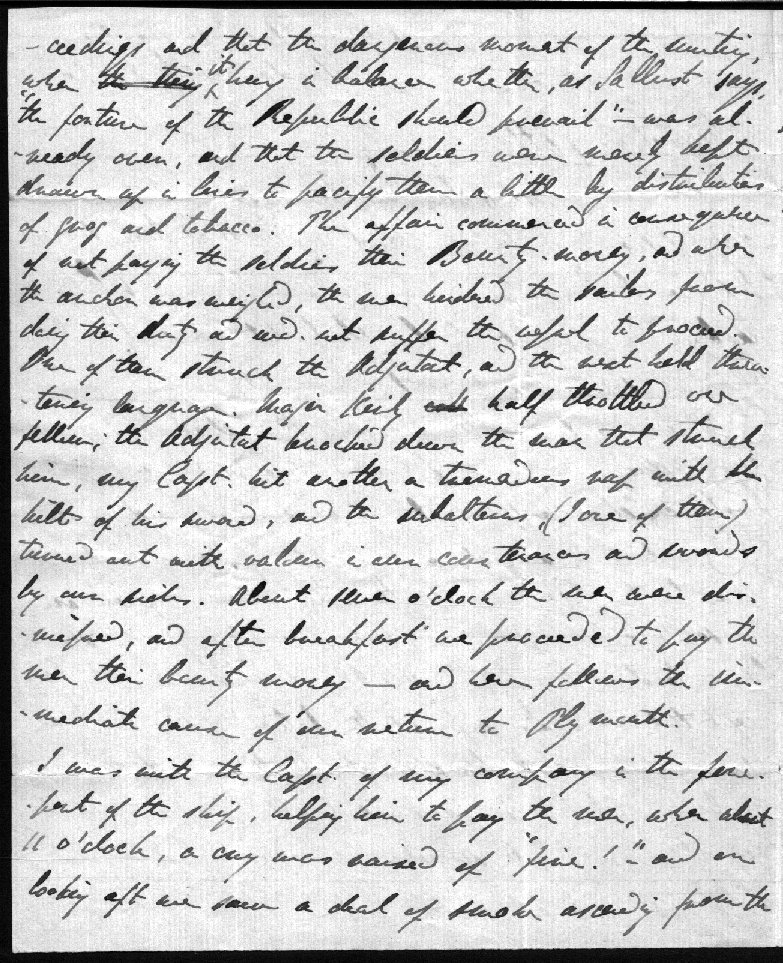 -ceedings and that the dangerous moment of the mutiny,
when the thing it hung in balance whether, as Sallust says,
"the fortune of the Republic should prevail" – was al-
-ready over, and that the soldiers were merely kept
drawn up in lines to pacify them a little by distributions
of grog and tobacco. The affair commenced in consequence
of not paying the soldiers their Bounty-money, and when
the anchor was weighed, the men hindered the sailors from
doing their duty and wd. not suffer the vessel to proceed.
One of them struck the Adjutant, and the next held threa-
-tening language. Major Keily half throttled one
fellow; the Adjutant knocked down the man that struck
him, my Capt. hit another a tremendous rap with the
hilt of his sword, and the subalterns, (I one of them)
turned out with valour in our countenances and swords
by our sides. About seven o'clock the men were dis-
-missed, and after breakfast we proceeded to pay the
men their bounty money — and here follows the im-
-mediate cause of our return to Plymouth.
I was with the Capt. of my company in the fore-
-part of the ship, helping him to pay the men, when about
11 o'clock, a cry was raised of "fire!" – and on
looking aft we saw a deal of smoke ascending from the